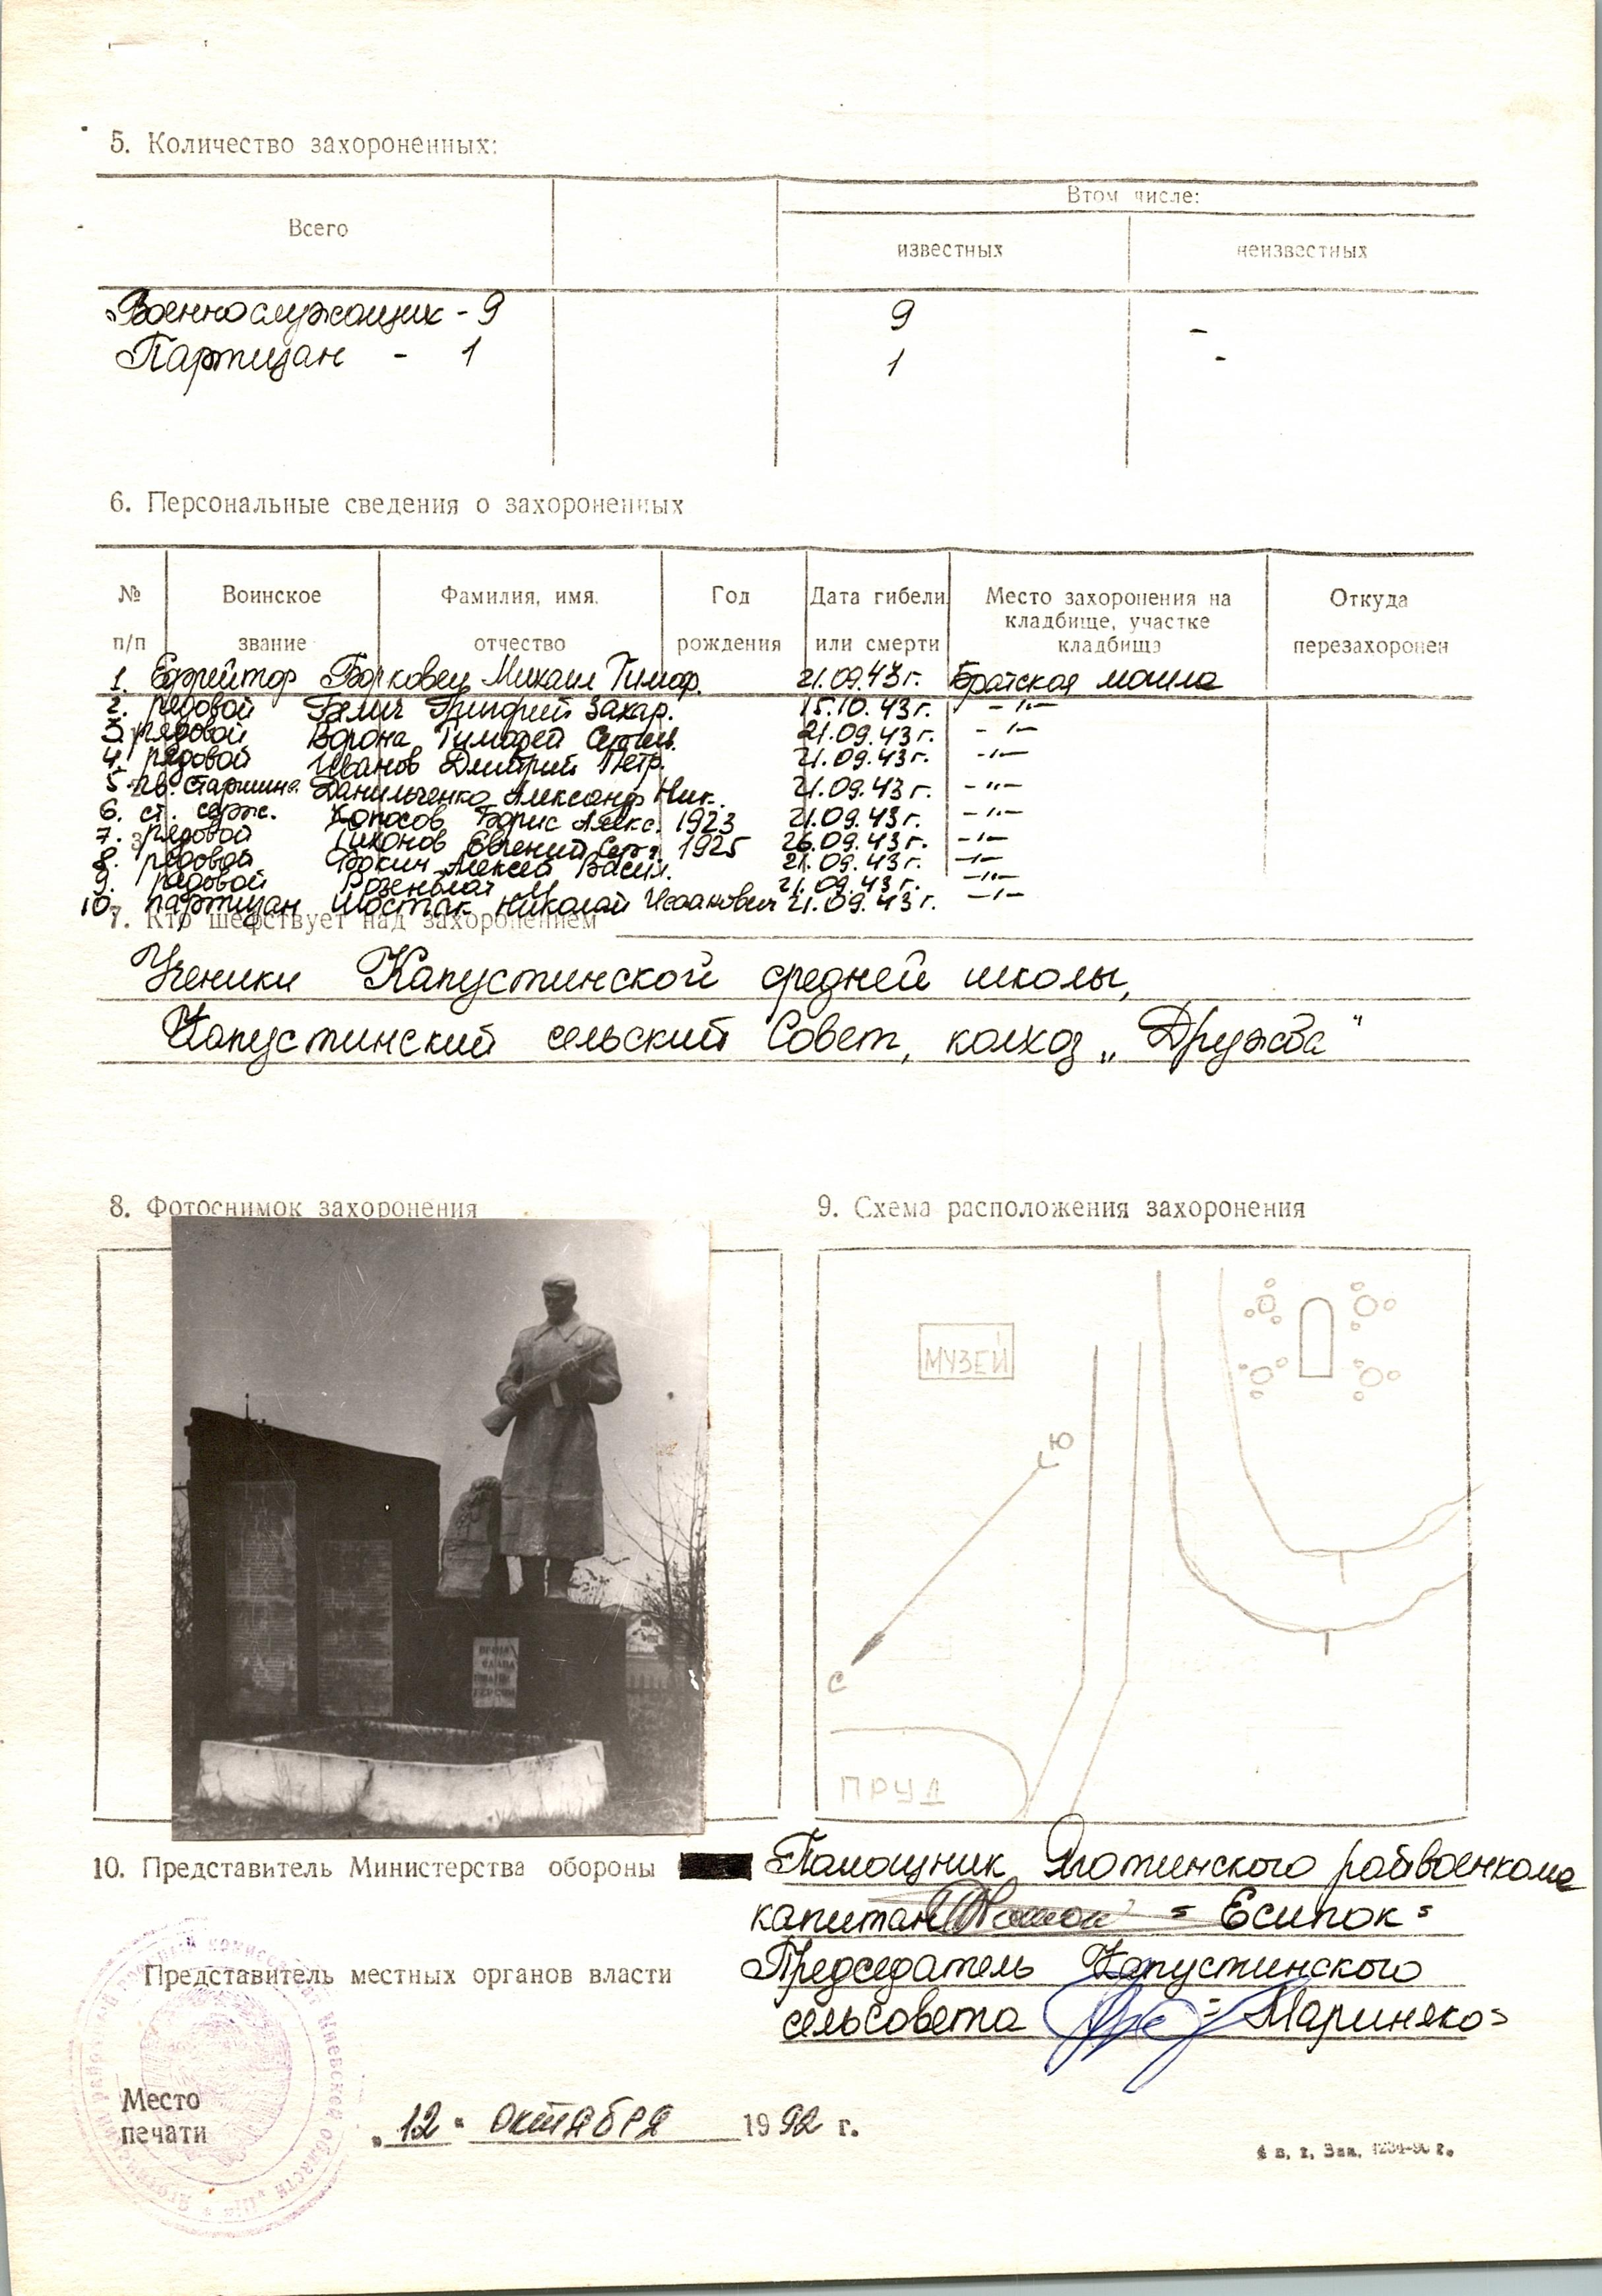 5. Количество захороненных:
Всего
Втом числе:
известных
неизвестных
Военнослужащих - 9 9 -
Партизан - 1 1 -
6. Персональные сведения о захороненных
№ п/п
Воинское звание
Фамилия, имя, отчество
Год рождения
Дата гибели или смерти
Место захоронения на кладбище, участке кладбища
Откуда перезахоронен
1. Ефрейтор Борковец Михаил Тимоф. 21.09.43г. Братская могила
2. рядовой Белич Григорий Захар. 15.10.43г. -"-
3. рядовой Ворона Тимофей 21.09.43г. -"-
4. рядовой Иванов Дмитрий Петр. 21.09.43г. -"-
5. гв. старшина Данильченко Александр Ник. 21.09.43г. -"-
6. ст. серж. Копосов Борис Алекс. 1923 21.09.43г. -"-
7. рядовой Тихонов Евгений Серг. 1925 26.09.43г. -"-
8. рядовой Алексей Васил. 21.09.43г. -"-
9. рядовой Розенблат М 21.09.43г. -"-
10. партизан Шостак Николай Исаакович 21.09.43г. -"-
7. Кто шефствует над захоронением
Ученики Капустинской средней школы,
Капустинский сельский Совет, колхоз „Дружба"
8. Фотоснимок захоронения
9. Схема расположения захоронения
МУЗЕЙ
Ю
С
ПРУД
10. Представитель Министерства обороны
Помощник Яготинского райвоенкома
капитан = Есипок =
Представитель местных органов власти
Председатель Капустинского
сельсовета = Мариняко =
Место
печати
„12" октября 1992 г.